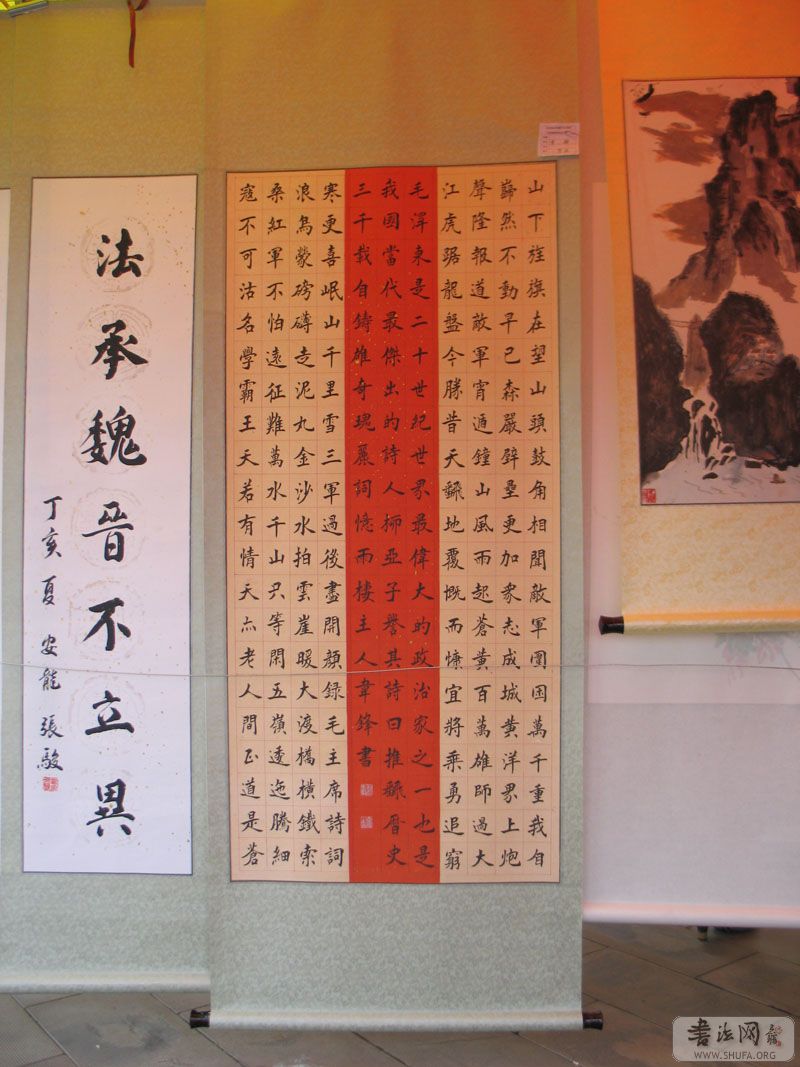 山下旌旗在望山頭鼓角相聞敵軍圍困萬千重我自
巋然不動早已森嚴壁壘更加衆志成城黄洋界上炮
聲隆報道敵軍宵遁鐘山風雨起蒼黄百萬雄師過大
江虎踞龍盤今勝昔天翻地覆慨而慷宜將乘勇追窮
毛澤東是二十世紀世界最偉大的政治家之一也是
我國當代最傑出的詩人柳亞子譽其詩曰推翻曆史
三千載自鑄雄奇瑰麗詞憶雨樓主人韋鋒書
寒更喜岷山千里雪三軍過後盡開顔録毛主席詩詞
浪烏蒙磅礴走泥丸金沙水拍雲崖暖大渡橋橫鐵索
桑紅軍不怕遠征難萬水千山只等閑五嶺逶迤騰細
寇不可沽名學霸王天若有情天亦老人間正道是蒼
法承魏晉不立異
丁亥夏安龍張駿
書法网
WWW.SHUFA.ORG